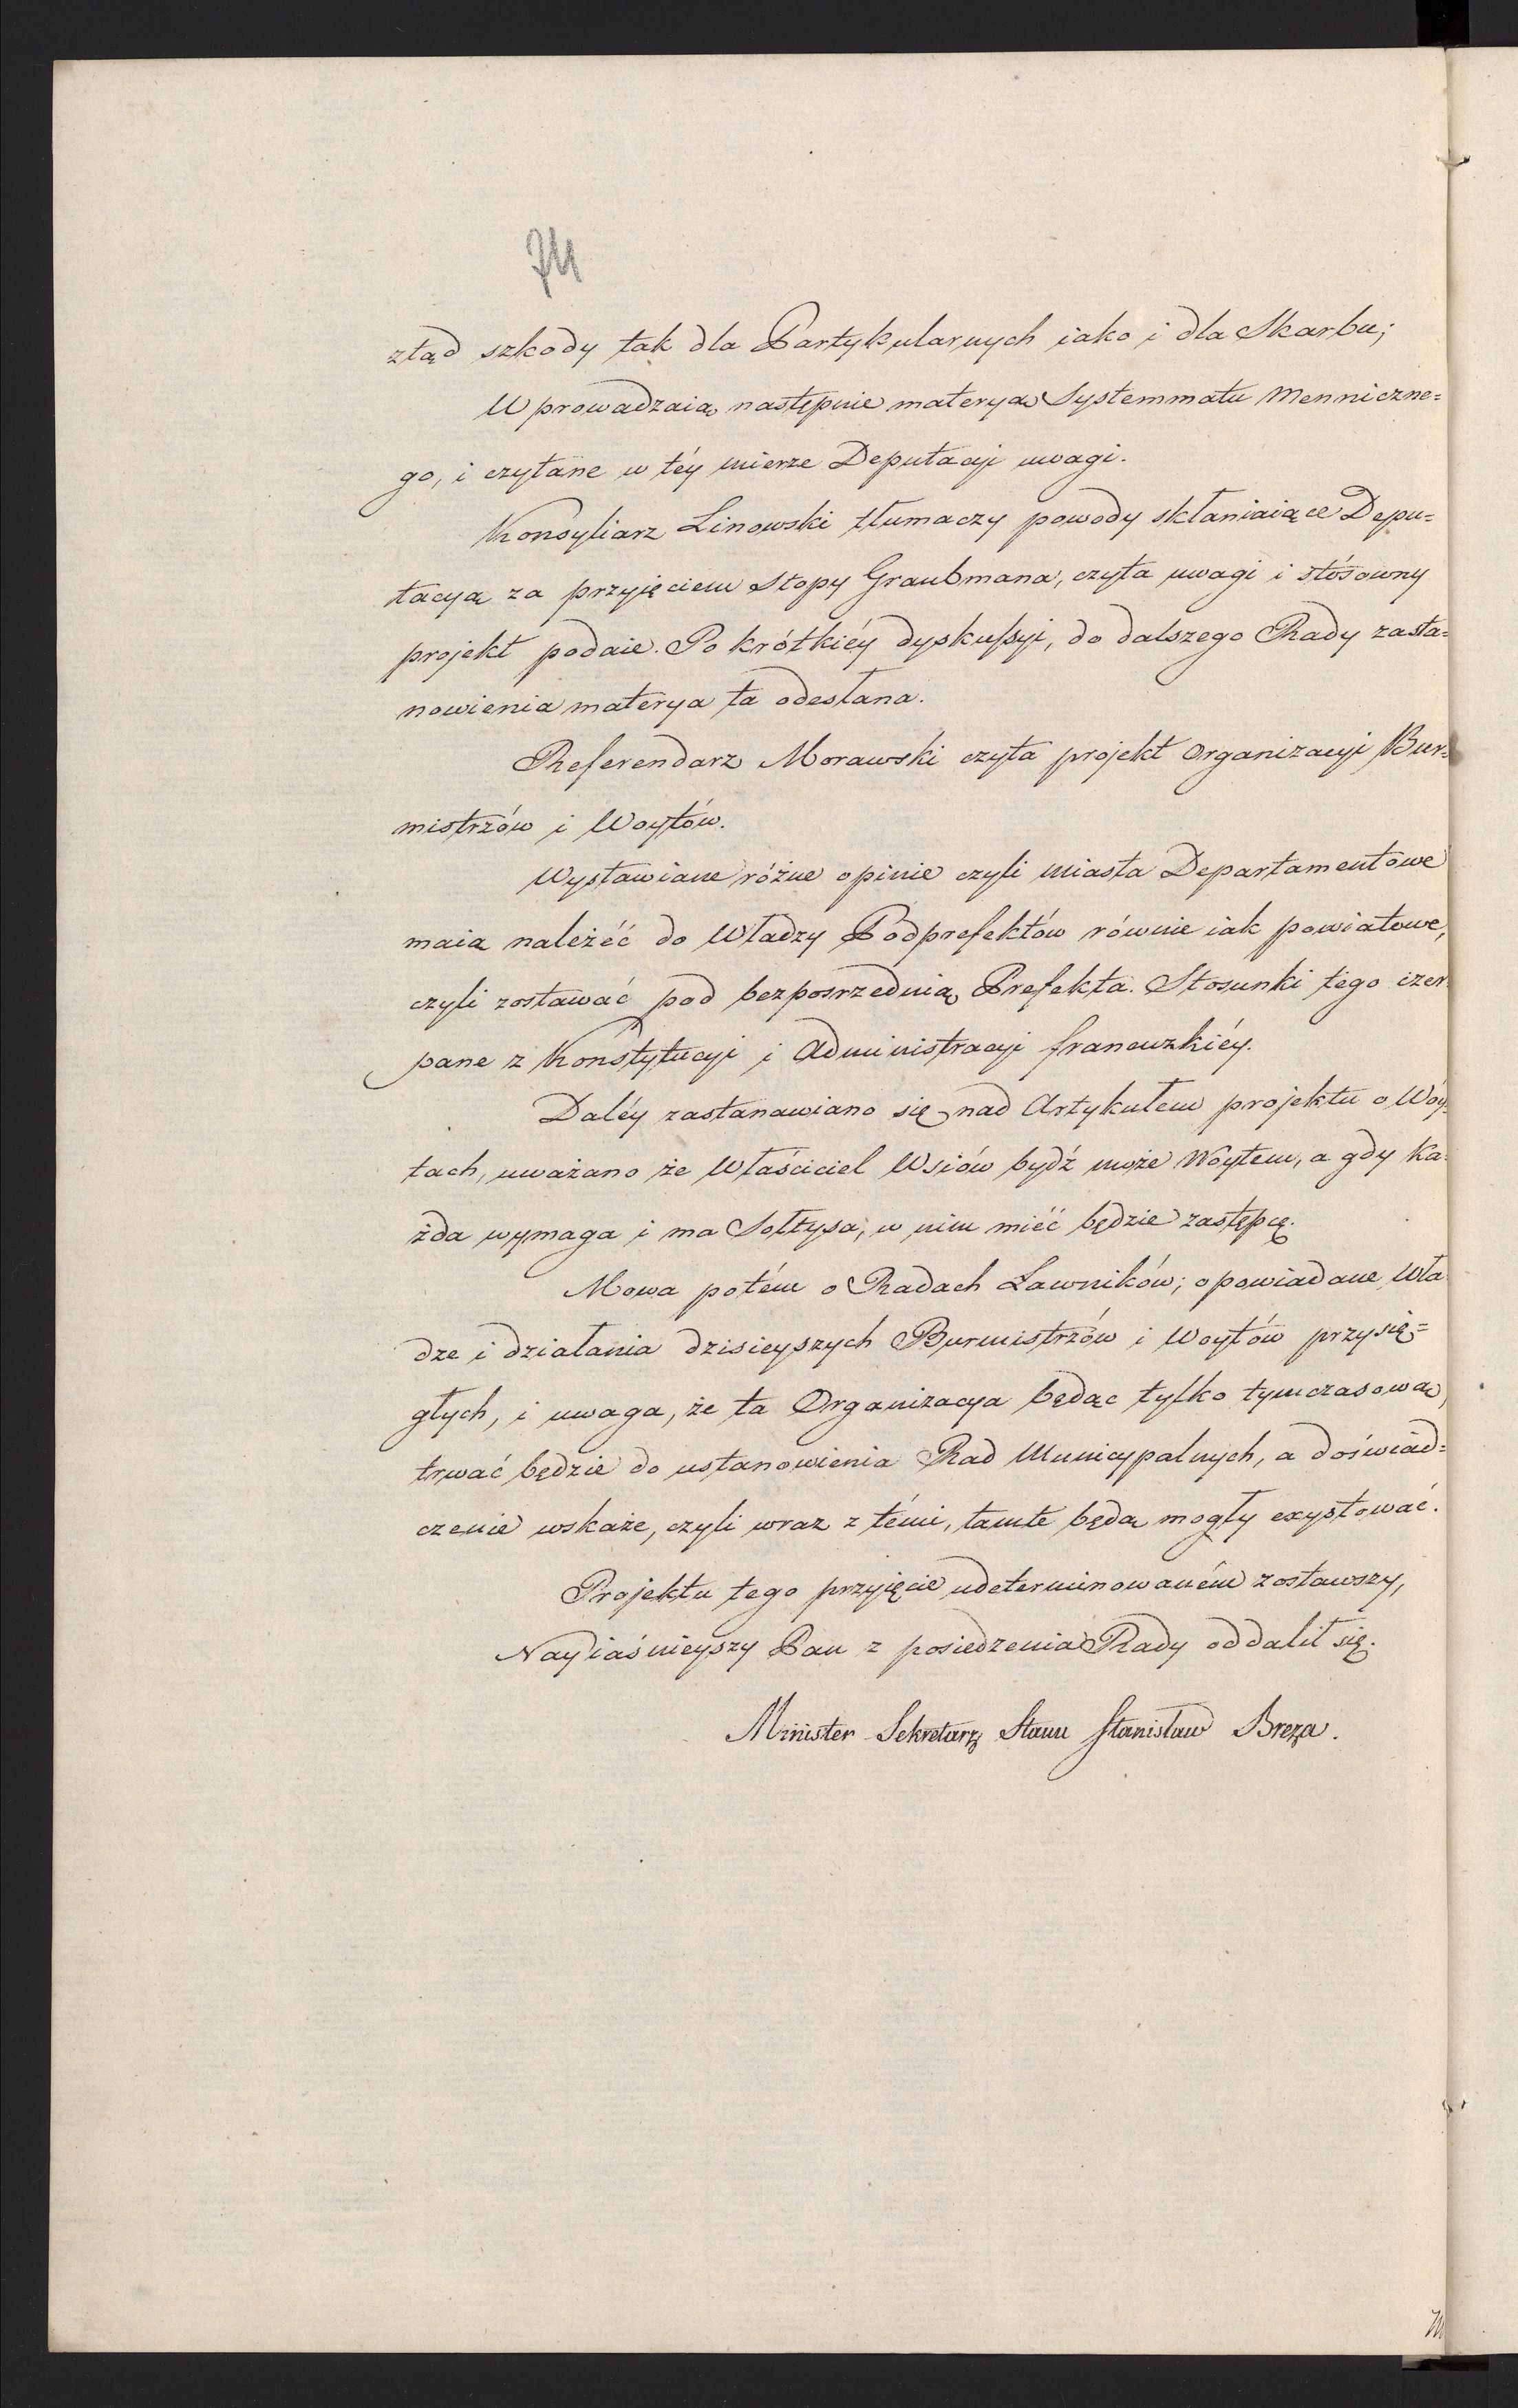 ztąd szkody tak dla Partykularnych iako i dla Skarbu;
Wprowadzaią następnie materyą Systemmatu Menniczne=
go, i czytane w téy mierze Deputacyi uwagi.
Konsyliarz Linowski tłumaczy powody skłaniaiące Depu=
tacyą za przyjęciem Stopy Graubmana, czyta uwagi i stósowny
projekt podaie. Po krótkiéy dyskussyi, do dalszego Rady zasta=
nowienia materya ta odesłana.
Referendarz Morawski czyta projekt Organizacyi Bur=
mistrzów i Woytów.
Wystawiane różne opinie czyli miasta Departamentowe
maią należéć do Władzy Podprefektów równie iak powiatowe,
czyli zostawać pod bezposrzednią Prefekta. Stosunki tego czer
pane z Konstytucyi i Administracyi francuzkiéy.
Daléy zastanawiano się nad Artykułem projektu o Wóy=
tach, uważano że Właściciel Wsiów bydź może Woytem, a gdy Ka=
żda wymaga i ma Sołtysa, w nim miéć będzie zastępcę.
Mowa potém o Radach Ławników; opowiadane Wła
dze i działania dzisieyszych Burmistrzów i Woytów przysię=
głych, i uwaga, że ta Organizacya będąc tylko tymczasową,
trwać będzie do ustanowienia Rad Municypalnych, a doświad=
czenie wskaże, czyli wraz z témi, tamte będą mogły exystować.
Projektu tego przyjęcie udeterminowaném zostawszy,
Nayiaśnieyszy Pan z posiedzenia Rady oddalił się.
Minister Sekretarz Stanu Stanisław Breza.